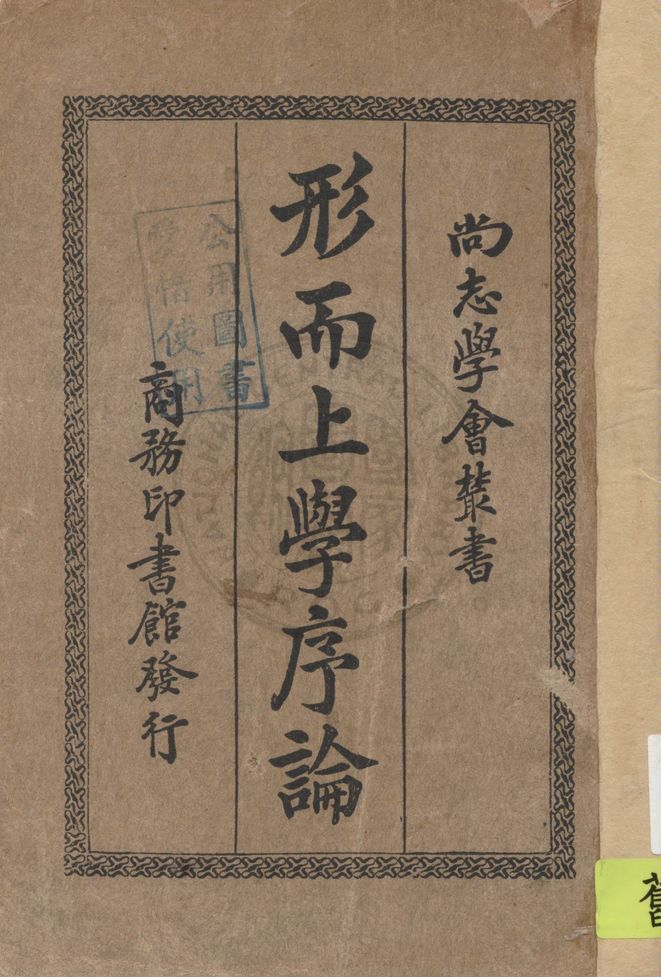 尚志學會叢書
形而上學序論
商務印書館發行
公用圖書
愛惜使用
舊